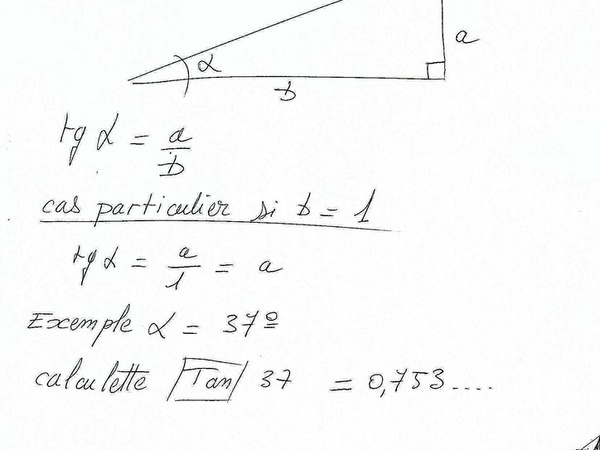 a
α
b
tg α = a/b
cas particulier si b = 1
tg α = a/1 = a
Exemple α = 37º
calculette Tan 37 = 0,753....